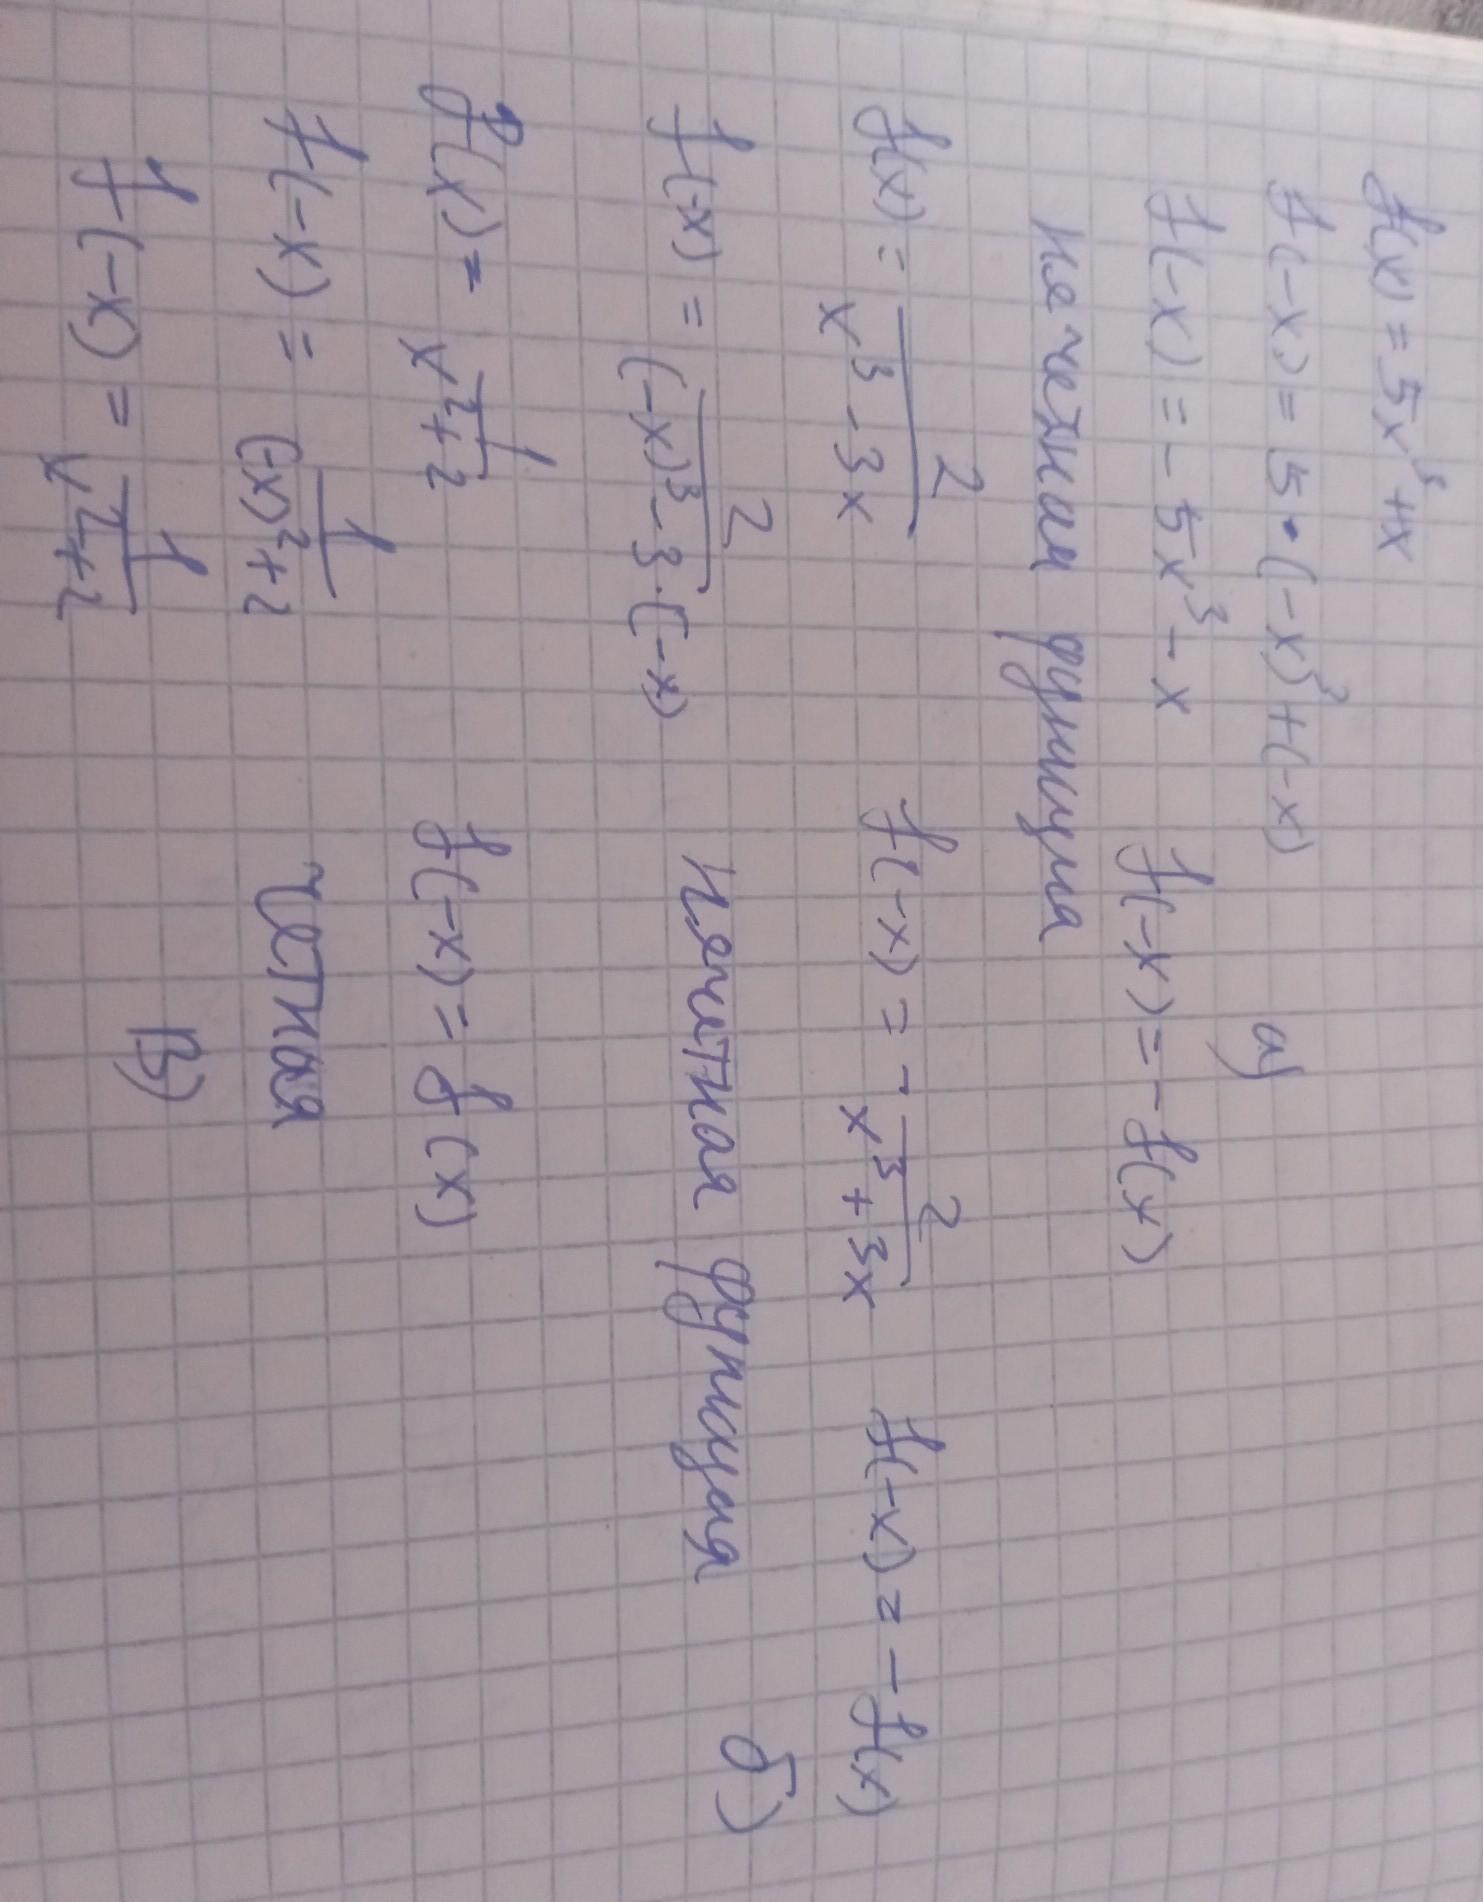 f(x) = 5x³ + x
f(-x) = 5 · (-x)³ + (-x) а)
f(-x) = - 5x³ - x f(-x) = - f(x)
нечетная функция
f(x) = 2/(x³ - 3x) f(-x) = - 2/(x³ + 3x) f(-x) = - f(x)
f(-x) = 2/((-x)³ - 3·(-x)) нечетная функция б)
f(x) = 1/(x² + 2) f(-x) = f(x)
f(-x) = 1/((-x)² + 2) четная
f(-x) = 1/(x² + 2) в)